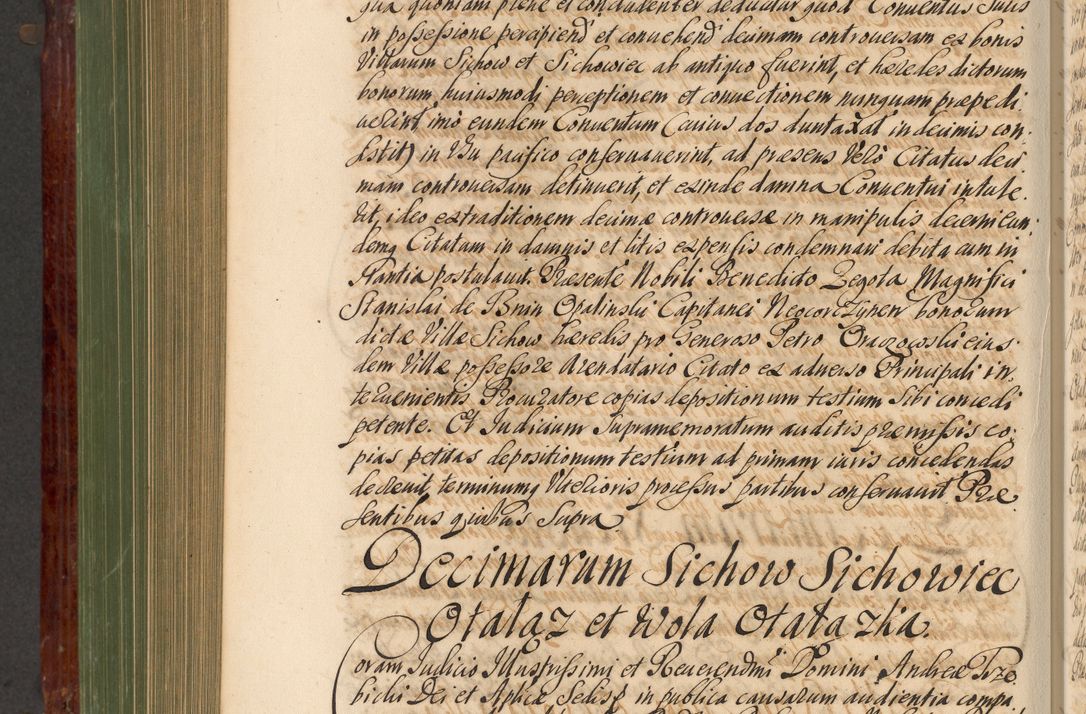 quoniam plene et concludenter deducitur quod Conuentus Sulis
in possessione percipiend et conuehend decimam controuersam ex bonis
Villarum Sichow et Sichowiec ab antiquo fuerint, et hæredes dictorum
bonorum huiusmodi perceptionem et conuectionem nunquam præpedi,
uerint imò eundem Conuentum (cuius dos duntaxat in decimis con,
sistit) in Usu pacifico conseruauerint, ad præsens Verò Citatus deci
mam controuersam detinuerit, et exinde damna Conuentui intule,
rit, ideo extraditionem decimæ controuersæ in manipulis decerni eun,
demq Citatum in damnis et litis expensis condemnari debita cum in
stantia postulauit. Præsente Nobili Benedicto Zegota Magnifici
Stanislai de Bnin Opalinski Capitanei Neocorczynen bonorum
dictæ Villæ Sichow hæredis pro Generoso Petro Oraczowski eius,
dem Villæ possessore Arendatario Citato ex aduerso Principali in,
teruenientis Procuratore copias depositionum testium Sibi concedi
petente. Et Judicium Supramemoratum auditis præmissis co,
pias petitas depositionum testium ad primam iuris concedendas
decreuit, terminumq Ulterioris processus partibus conseruauit Præ,
sentibus quibus Supra
Decimarum Sichow Sichowiec
Otałąz et Wola Otałazka.
Coram Judicio Illustrissimi et Reuerendmi Domini Andreæ Trze
bicki Dei et Aplicæ Sedis in publica causarum audientia compa,